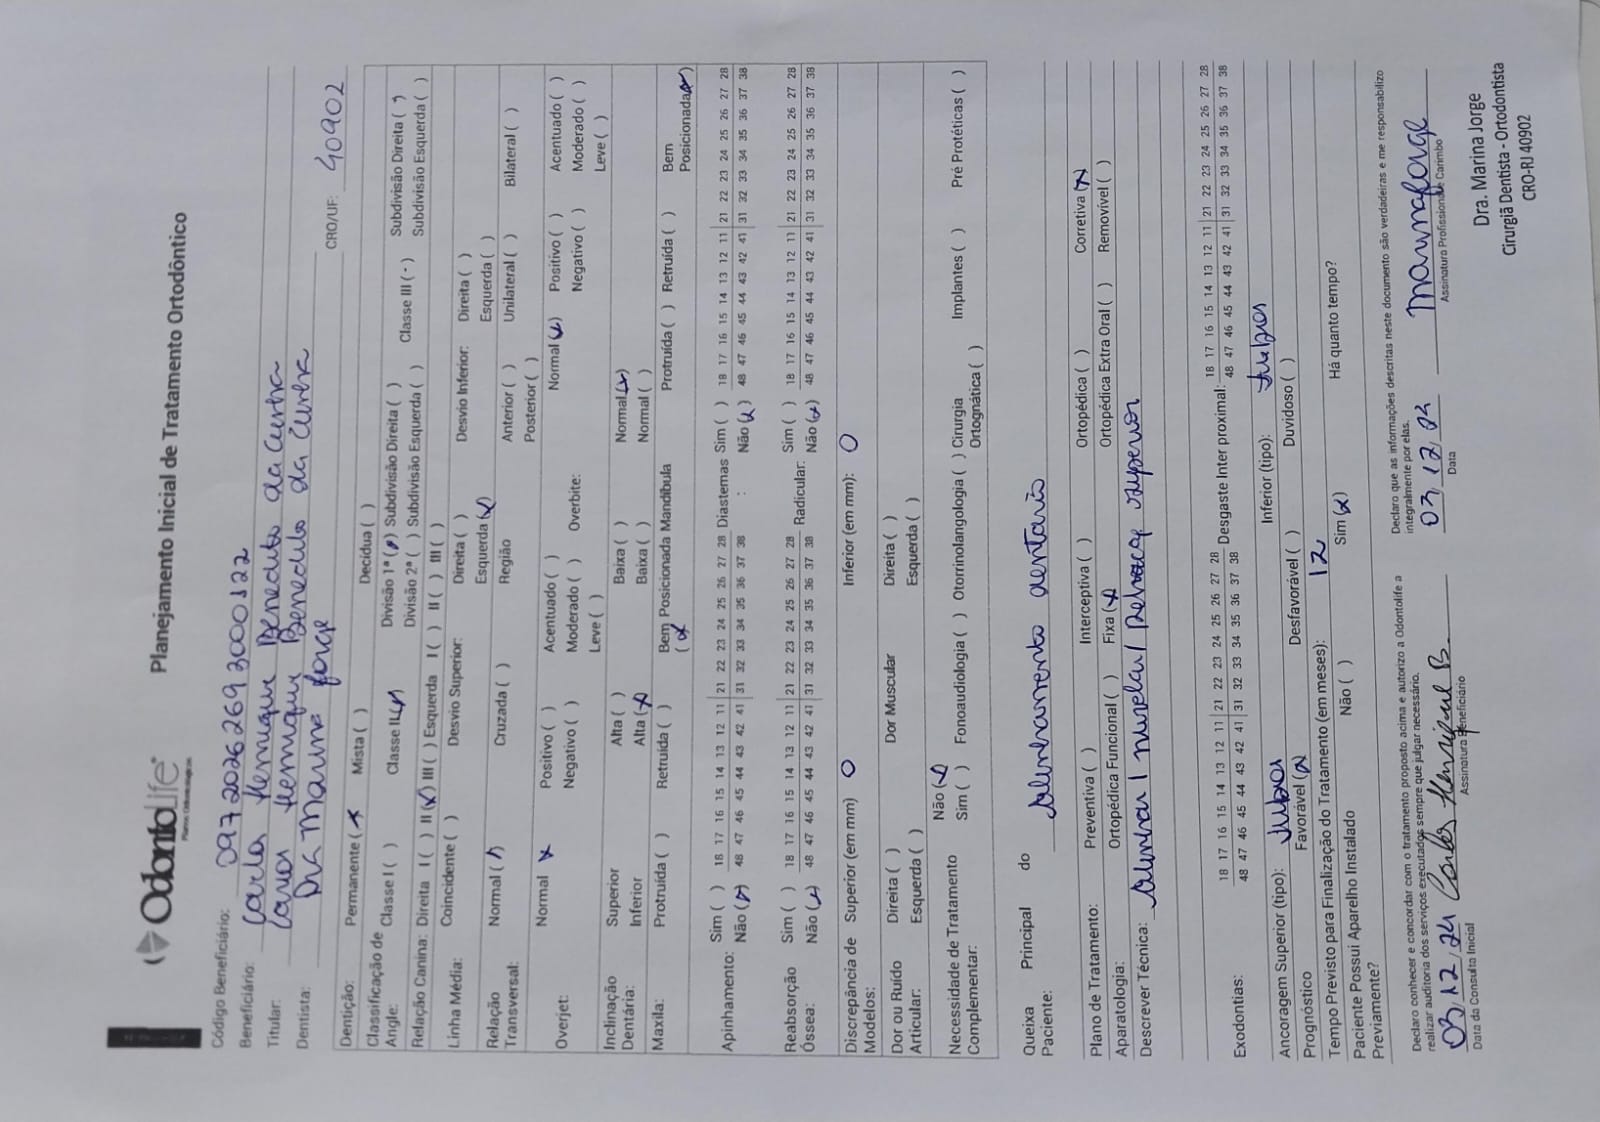 OdontoLife
Planos Odontológicos
Planejamento Inicial de Tratamento Ortodôntico
Código Beneficiário: 097 2026 269 3000122
Beneficiário: Carlos Henrique Benedito da Cunha
Titular: Carlos Henrique Benedito da Cunha
Dentista: Dra Marina Jorge CRO/UF: 40902
Dentição: Permanente (x Mista ( ) Decídua ( )
Classificação de Angle: Classe I ( ) Classe II (x) Divisão 1ª (x) Subdivisão Direita ( ) Classe III (-) Subdivisão Direita ( )
Divisão 2ª ( ) Subdivisão Esquerda ( ) Subdivisão Esquerda ( )
Relação Canina: Direita I ( ) II (x) III ( ) Esquerda I ( ) II ( ) III ( )
Linha Média: Coincidente ( ) Desvio Superior: Direita ( ) Desvio Inferior: Direita ( )
Esquerda (x) Esquerda ( )
Relação Transversal: Normal (x) Cruzada ( ) Região Anterior ( ) Unilateral ( ) Bilateral ( )
Posterior ( )
Overjet: Normal x Positivo ( ) Acentuado ( ) Overbite: Normal (x) Positivo ( ) Acentuado ( )
Negativo ( ) Moderado ( ) Negativo ( ) Moderado ( )
Leve ( ) Leve ( )
Inclinação Dentária: Superior Alta ( ) Baixa ( ) Normal (x)
Inferior Alta (x) Baixa ( ) Normal ( )
Maxila: Protruída ( ) Retruída ( ) Bem Posicionada (x) Mandíbula Protruída ( ) Retruída ( ) Bem Posicionada (x)
Apinhamento: Sim ( ) 18 17 16 15 14 13 12 11 | 21 22 23 24 25 26 27 28 Diastemas : Sim ( ) 18 17 16 15 14 13 12 11 | 21 22 23 24 25 26 27 28
Não (x) 48 47 46 45 44 43 42 41 | 31 32 33 34 35 36 37 38 Não (x) 48 47 46 45 44 43 42 41 | 31 32 33 34 35 36 37 38
Reabsorção Óssea: Sim ( ) 18 17 16 15 14 13 12 11 | 21 22 23 24 25 26 27 28 Radicular: Sim ( ) 18 17 16 15 14 13 12 11 | 21 22 23 24 25 26 27 28
Não (x) 48 47 46 45 44 43 42 41 | 31 32 33 34 35 36 37 38 Não (x) 48 47 46 45 44 43 42 41 | 31 32 33 34 35 36 37 38
Discrepância de Modelos: Superior (em mm) 0 Inferior (em mm): 0
Dor ou Ruído Articular: Direita ( ) Dor Muscular Direita ( )
Esquerda ( ) Esquerda ( )
Necessidade de Tratamento Complementar: Não (x)
Sim ( ) Fonoaudiologia ( ) Otorrinolangologia ( ) Cirurgia Ortognática ( ) Implantes ( ) Pré Protéticas ( )
Queixa Principal do Paciente: alinhamento dentário
Plano de Tratamento: Preventiva ( ) Interceptiva ( ) Ortopédica ( ) Corretiva (x)
Aparatologia: Ortopédica Funcional ( ) Fixa (x) Ortopédica Extra Oral ( ) Removível ( )
Descrever Técnica: alinhar / nivelar / superior
Exodontias: 18 17 16 15 14 13 12 11 | 21 22 23 24 25 26 27 28 Desgaste Inter proximal: 18 17 16 15 14 13 12 11 | 21 22 23 24 25 26 27 28
48 47 46 45 44 43 42 41 | 31 32 33 34 35 36 37 38 48 47 46 45 44 43 42 41 | 31 32 33 34 35 36 37 38
Ancoragem Superior (tipo): tubos Inferior (tipo): tubos
Prognóstico Favorável (x) Desfavorável ( ) Duvidoso ( )
Tempo Previsto para Finalização do Tratamento (em meses): 12
Paciente Possui Aparelho Instalado Previamente? Não ( ) Sim (x) Há quanto tempo?
Declaro conhecer e concordar com o tratamento proposto acima e autorizo a Odontolife a
realizar auditoria dos serviços executados sempre que julgar necessário.
Declaro que as informações descritas neste documento são verdadeiras e me responsabilizo
integralmente por elas.
03,12,24 Carlos Henrique B.
Data da Consulta Inicial Assinatura Beneficiário
03,12,24 Marina Jorge
Data Assinatura Profissional e Carimbo
Dra. Marina Jorge
Cirurgiã Dentista - Ortodontista
CRO-RJ 40902